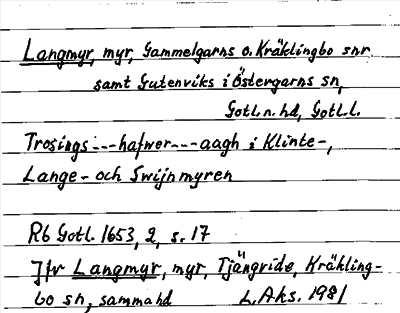 Langmyr, myr, Gammelgarns o. Kräklingbo snr
samt Gutenviks i Östergarns sn,
Gotl.n.hd, Gotl.l.
Trosings ---hafwer---aagh i Klinte-,
Lange- och Swijnmyren
Rb Gotl. 1653, 2, s. 17
Jfr Langmyr, myr, Tjängvide, Kräkling-
bo sn, samma hd L. Aks. 1981